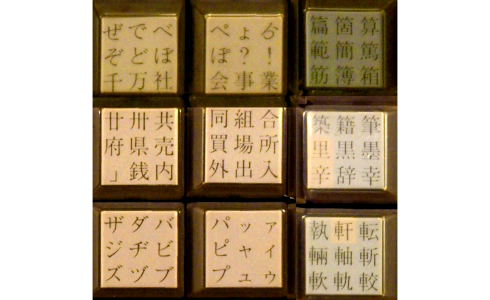 ぜでべ
ぞどぼ
千万社
ぺょ
ぽ?!
会事業
篇箇算
範簡篤
筋簿箱
廿卅共
府県売
」銭内
同組合
買場所
外出入
築籍筆
里黒墨
辛辞幸
ザダバ
ジヂビ
ズヅブ
パッァ
ピャィ
プュゥ
執軒転
輛軸斬
軟軌較